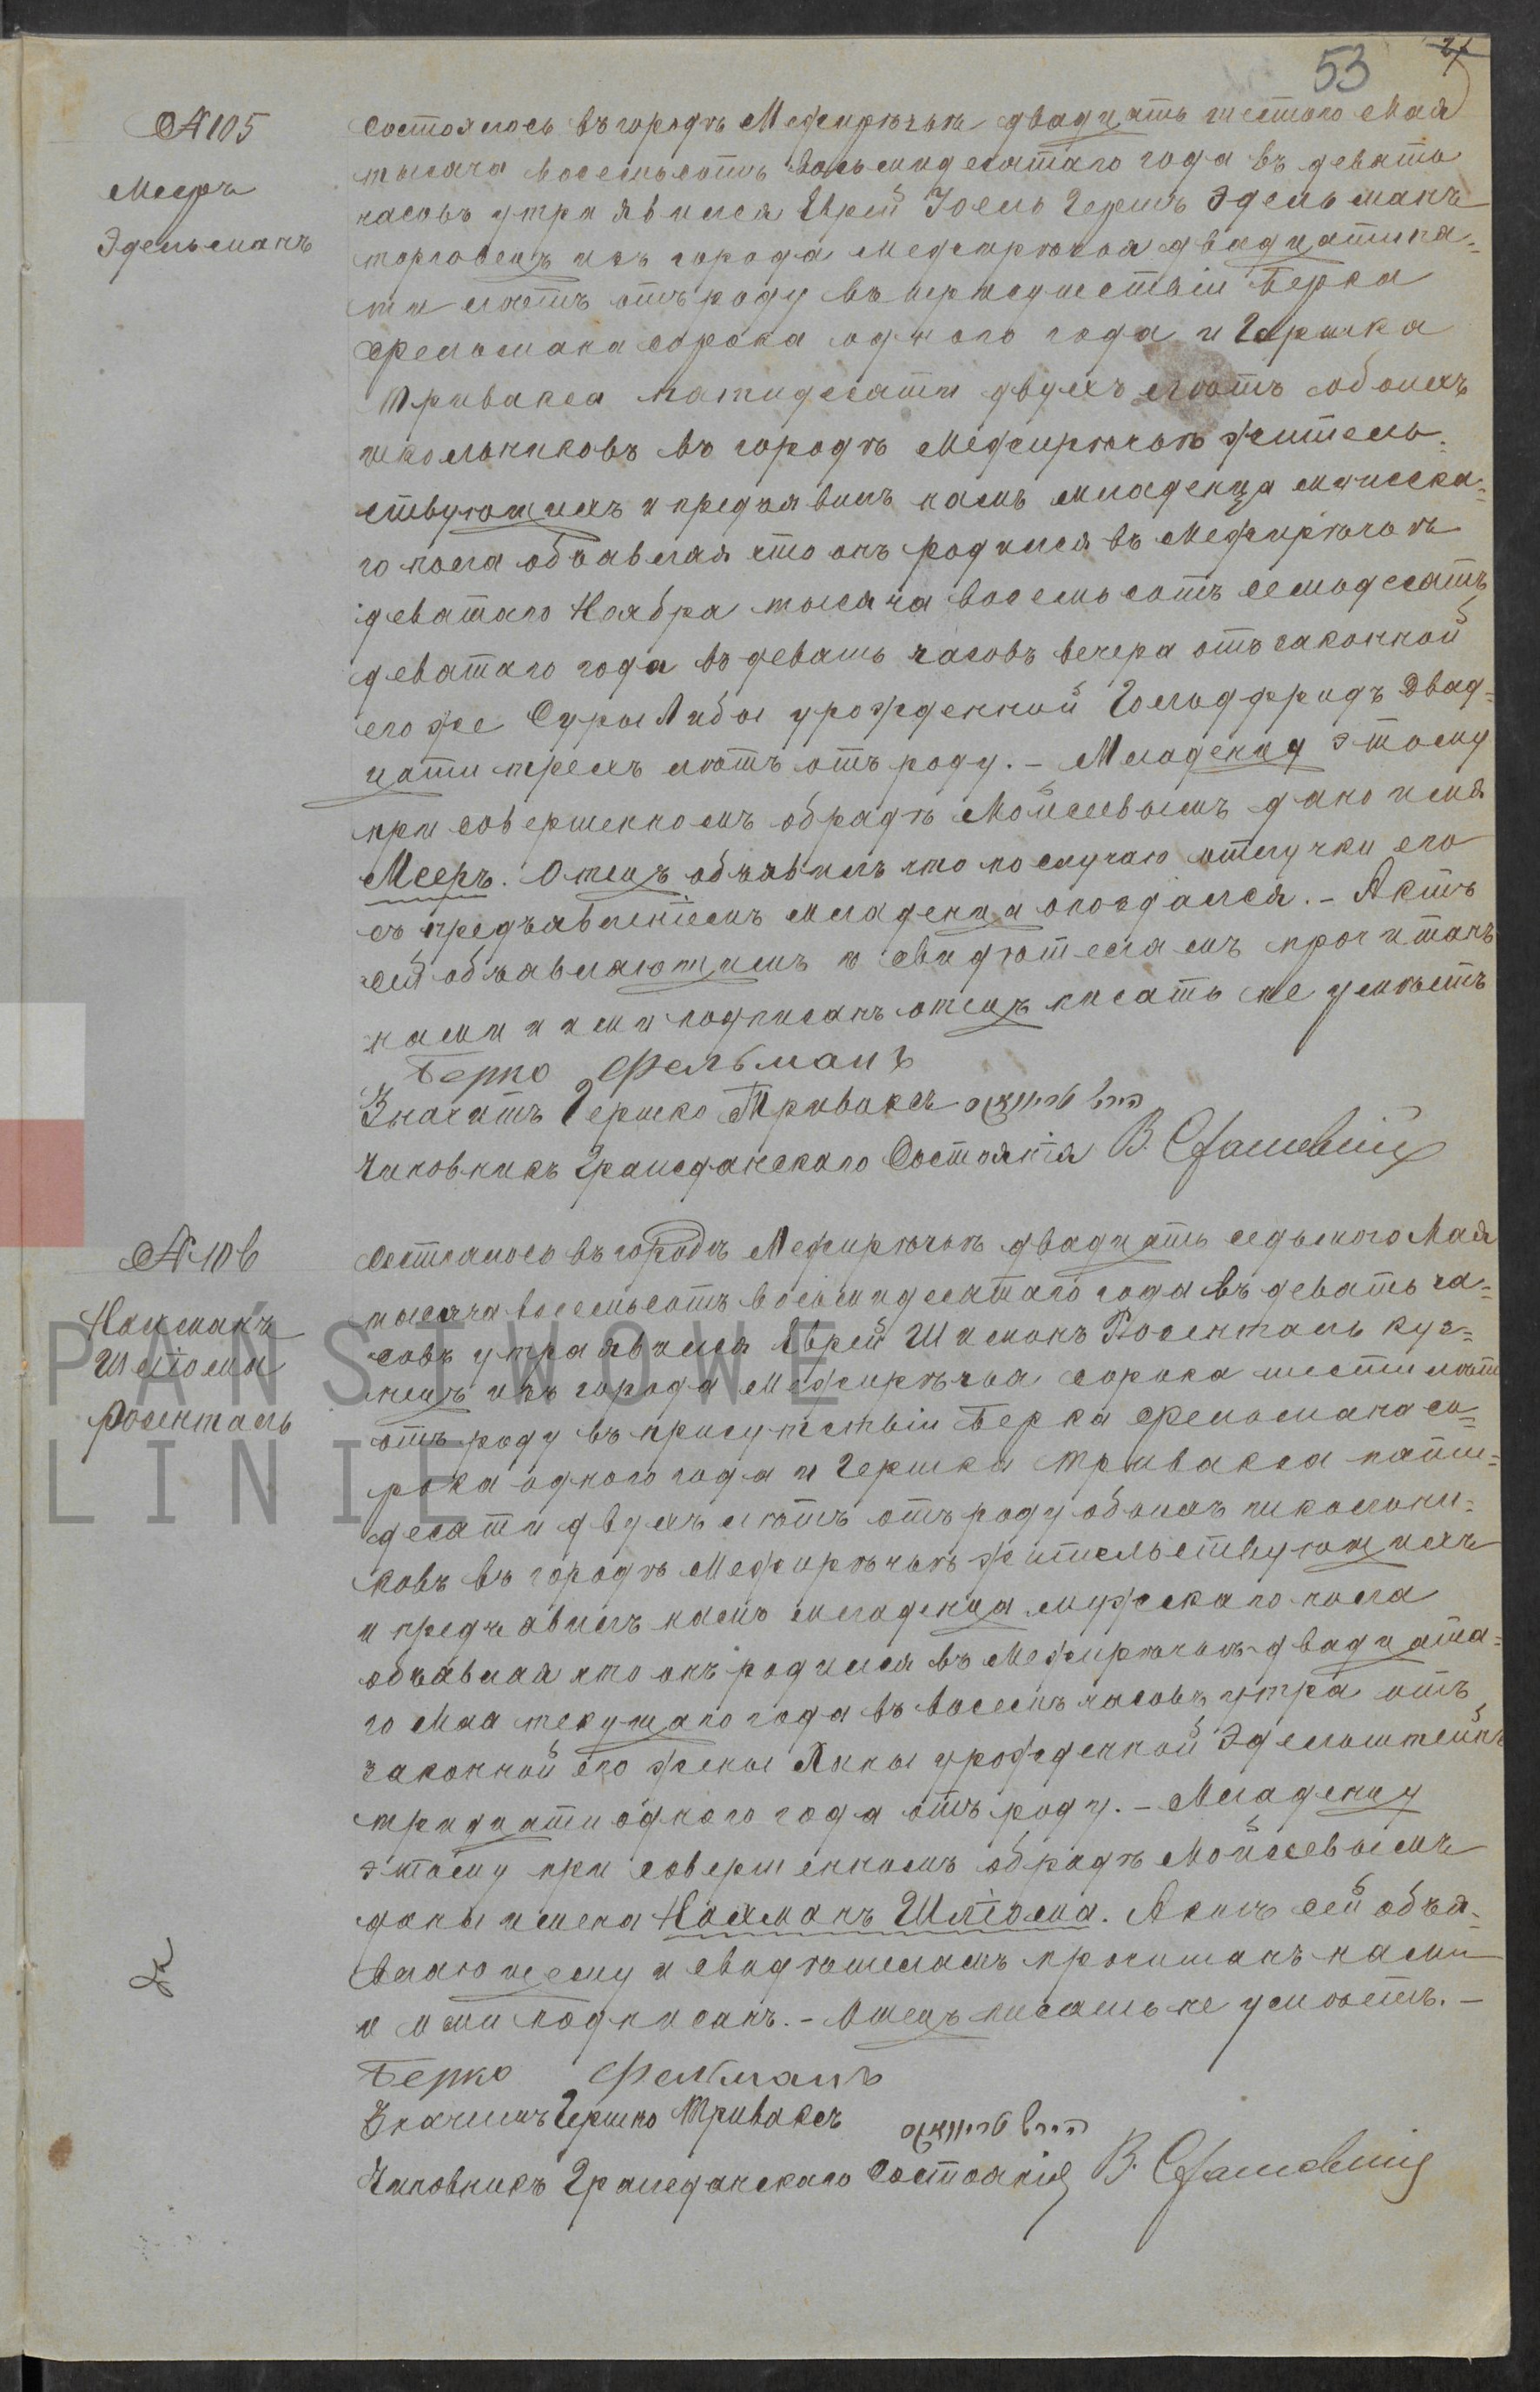 53
№ 105
Мееръ
Эдельманъ
Состоялось въ городѣ Межирѣчьѣ двадцать шестого Мая
тысяча восемьсотъ восьмидесятаго года въ девять
часовъ утра явился Еврей Іоель Гершъ Эдельманъ
торговецъ изъ города Межирѣчья двадцати пя-
ти лѣтъ отъ роду въ присутствіи Берка
Фельдмана сорока одного года и Гершка
Тривакса пятидесяти двухъ лѣтъ обоихъ
школьниковъ въ городѣ Межирѣчьѣ житель-
ствующихъ и предъявилъ намъ младенца мужска-
го пола объявляя что онъ родился въ Межирѣчьѣ
девятаго Ноября тысяча восемьсотъ семьдесятъ
девятаго года въ девять часовъ вечера отъ законной
его же Суры Либы урожденной Гольдфридъ двад-
цати трехъ лѣтъ отъ роду. - Младенцу этому
при совершенномъ обрядѣ Мойсеевымъ дано имя
Мееръ. Отецъ объявилъ что по случаю отлучки его
съ предъявленіемъ младенца опоздался. - Актъ
сей объявляющимъ и свидѣтелямъ прочитанъ
нами и ими подписанъ отецъ писать не умѣетъ
Берко Фельманъ
Значитъ Гершко Триваксъ הירש טריוואקס
Чиновникъ Гражданскаго Состоянія В.
№ 106
Нахманъ
Шліома
Розенталь
Состоялось въ городѣ Межирѣчьѣ двадцать седьмого Мая
тысяча восемьсотъ восьмидесятаго года въ девять ча-
совъ утра явился Еврей Шимонъ Розенталь куз-
нецъ изъ города Межирѣчья сорока шести лѣтъ
отъ роду въ присутствіи Берка Фельдмана со-
рока одного года и Гершка Тривакса пяти-
десяти двухъ лѣтъ отъ роду обоихъ школьни-
ковъ въ городѣ Межирѣчьѣ жительствующихъ
и предъявилъ намъ младенца мужскаго пола
объявляя что онъ родился въ Межирѣчьѣ двадцата-
го Мая текущаго года въ восемь часовъ утра отъ
законной его жены Анны урожденной Эдельштейнъ
тридцати одного года отъ роду. - Младенцу
этому при совершенномъ обрядѣ Мойсеевымъ
даны имена Нахманъ Шліома. Актъ сей объя-
вляющему и свидѣтелямъ прочитанъ нами
и ими подписанъ. - Отецъ писать не умѣетъ. -
Берко Фельманъ
Значитъ Гершко Триваксъ הירש טריוואקס
Чиновникъ Гражданскаго Состоянія В.
PAŃSTWOWE
LINIE